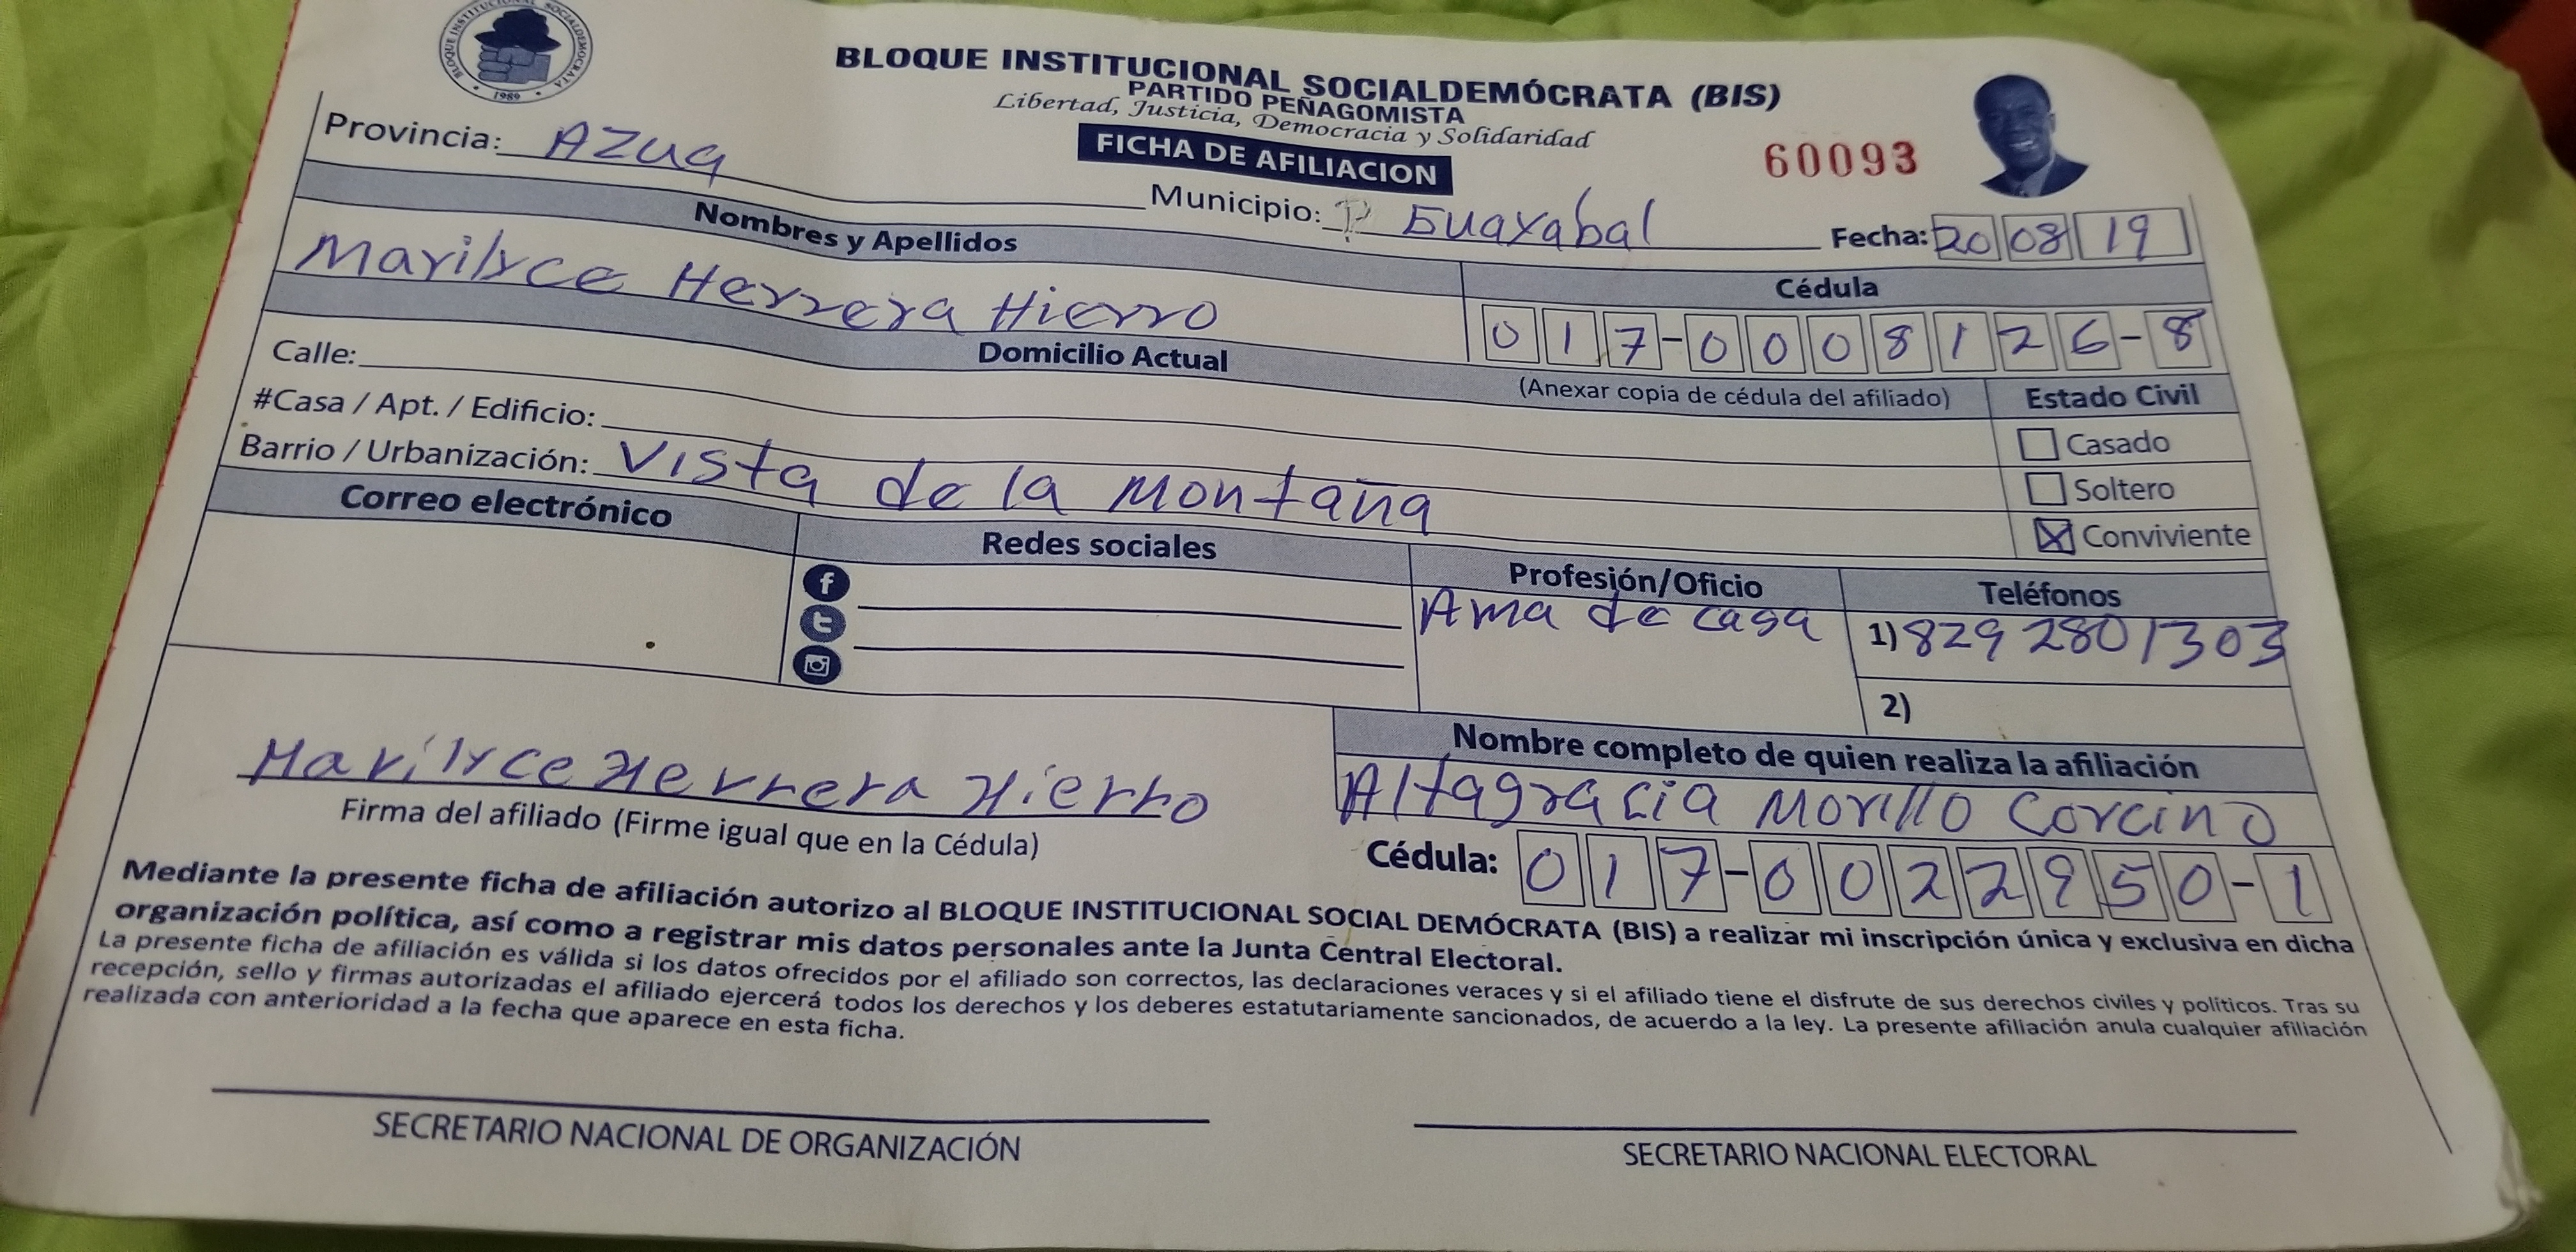 BLOQUE INSTITUCIONAL SOCIALDEMOCRATA
1989
BLOQUE INSTITUCIONAL SOCIALDEMÓCRATA (BIS)
PARTIDO PEÑAGOMISTA
Libertad, Justicia, Democracia y Solidaridad
FICHA DE AFILIACION
60093
Provincia: AZUA
Municipio: P Guayabal
Fecha: 20 08 19
Nombres y Apellidos
Marilyce Herrera Hierro
Cédula
017-0008126-8
(Anexar copia de cédula del afiliado)
Domicilio Actual
Calle:
#Casa / Apt. / Edificio:
Barrio / Urbanización: Vista de la Montaña
Estado Civil
Casado
Soltero
Conviviente
Correo electrónico
Redes sociales
Profesión/Oficio
Ama de casa
Teléfonos
1) 829 2801303
2)
Marilyce Herrera Hierro
Firma del afiliado (Firme igual que en la Cédula)
Nombre completo de quien realiza la afiliación
Altagracia Morillo Corcino
Cédula: 017-0022950-1
Mediante la presente ficha de afiliación autorizo al BLOQUE INSTITUCIONAL SOCIAL DEMÓCRATA (BIS) a realizar mi inscripción única y exclusiva en dicha
organización política, así como a registrar mis datos personales ante la Junta Central Electoral.
La presente ficha de afiliación es válida si los datos ofrecidos por el afiliado son correctos, las declaraciones veraces y si el afiliado tiene el disfrute de sus derechos civiles y políticos. Tras su
recepción, sello y firmas autorizadas el afiliado ejercerá todos los derechos y los deberes estatutariamente sancionados, de acuerdo a la ley. La presente afiliación anula cualquier afiliación
realizada con anterioridad a la fecha que aparece en esta ficha.
SECRETARIO NACIONAL DE ORGANIZACIÓN
SECRETARIO NACIONAL ELECTORAL